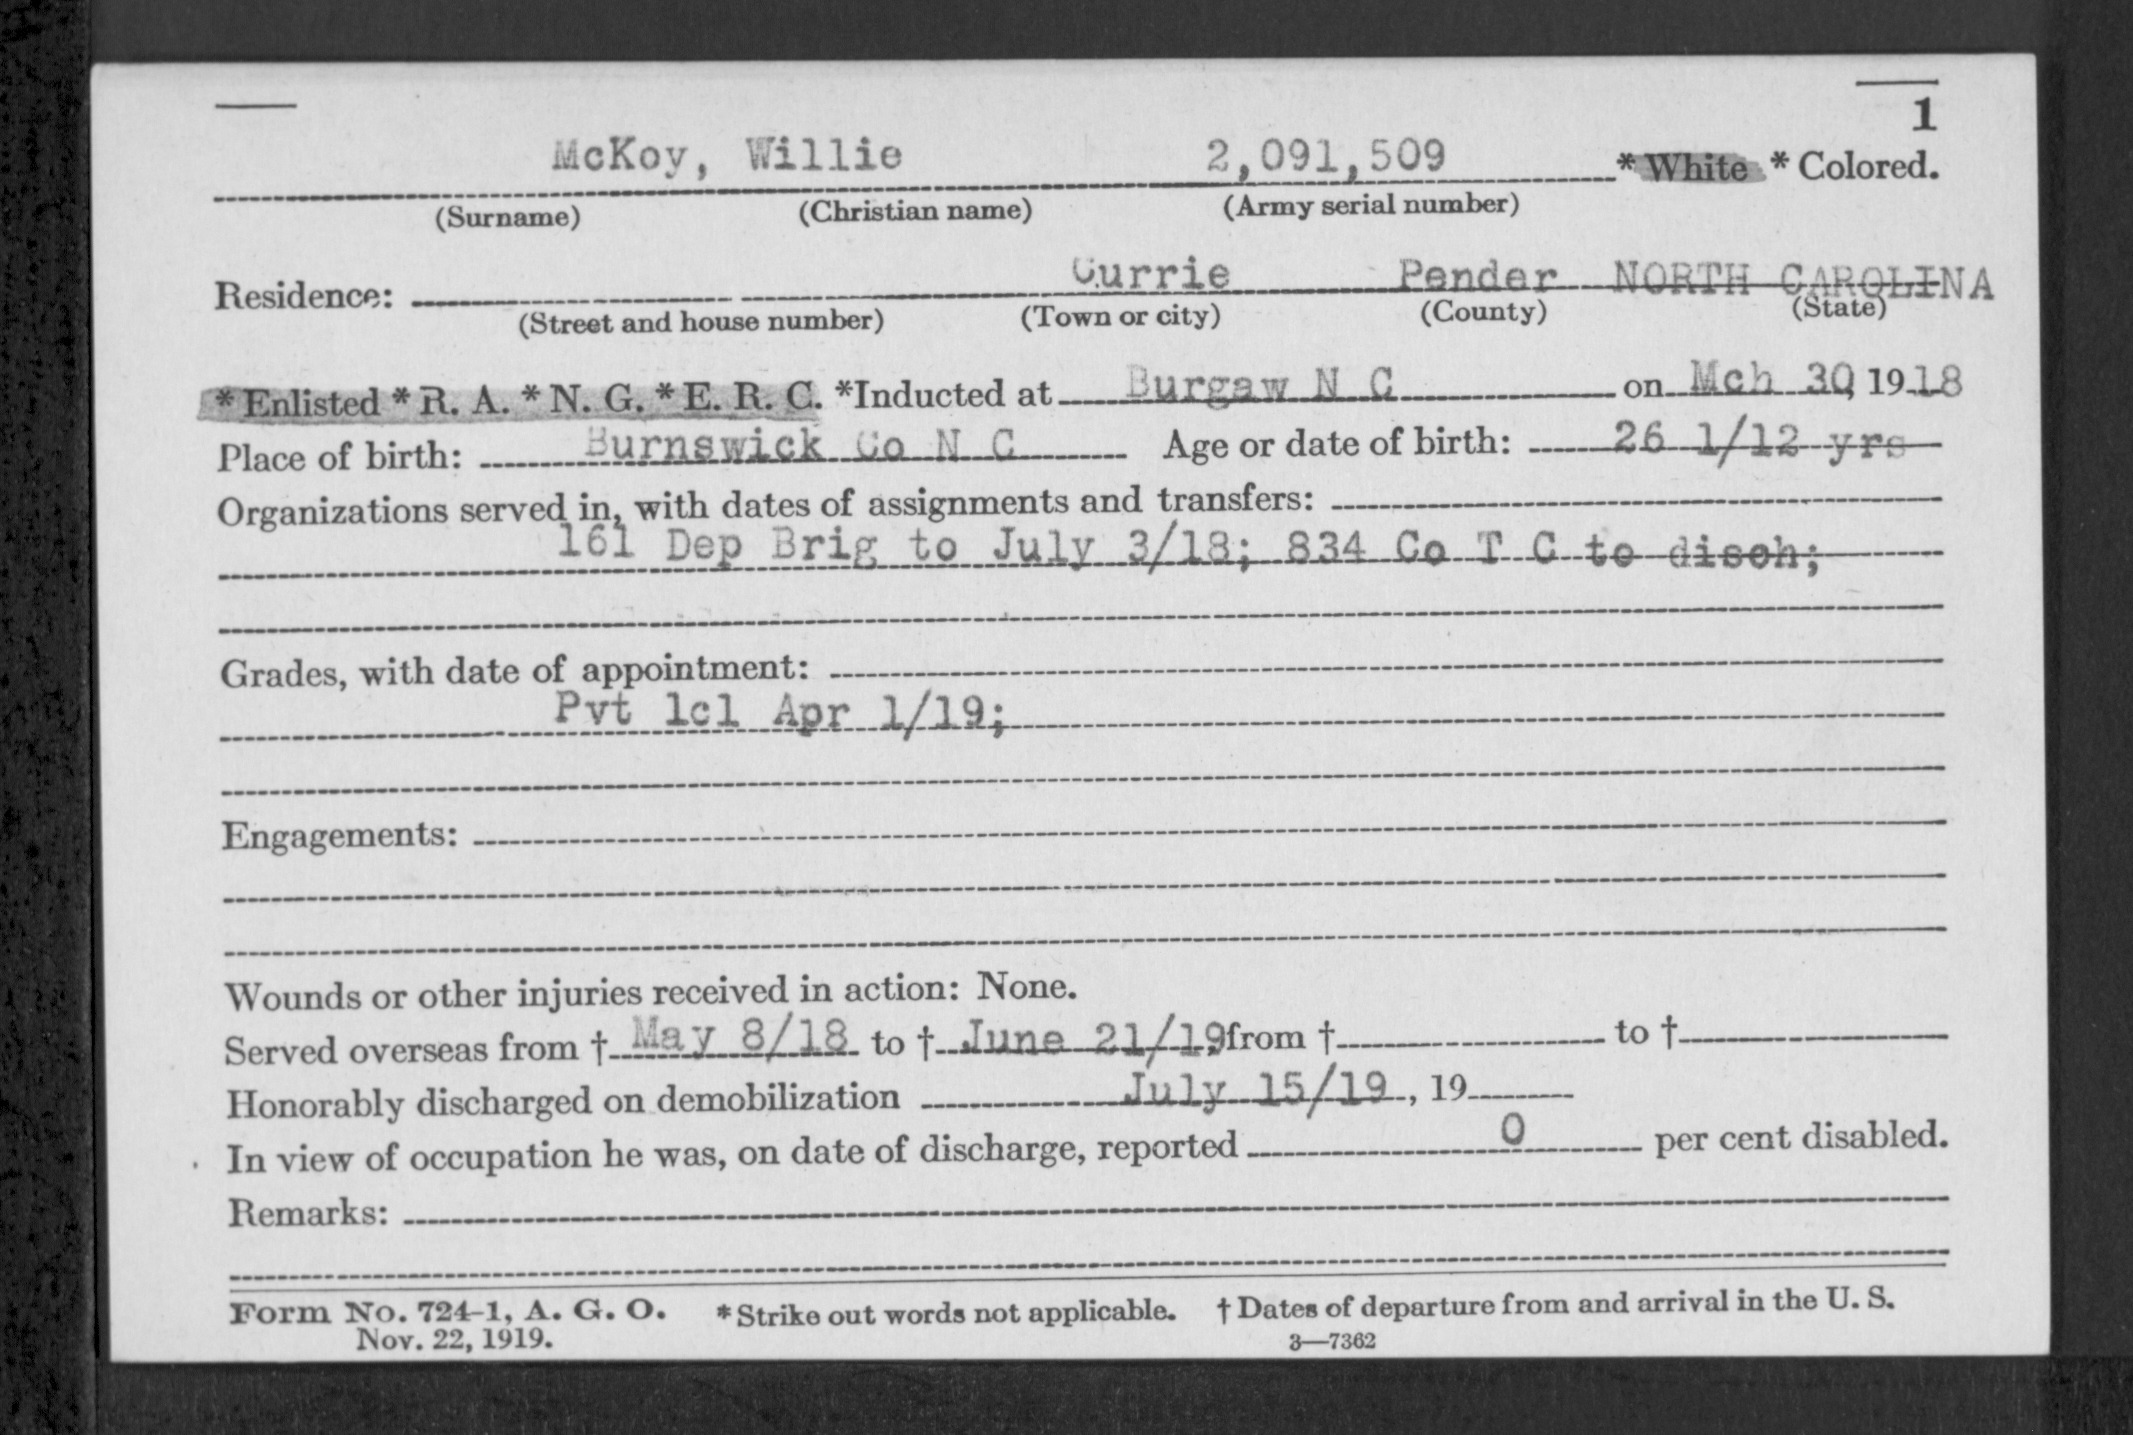 1
McKoy, Willie 2,091,509 * White * Colored.
(Surname) (Christian name) (Army serial number)
Residence: Currie Pender NORTH CAROLINA
(Street and house number) (Town or city) (County) (State)
*Enlisted *R. A. *N. G. *E. R. C. *Inducted at Burgaw N C on Mch 30, 1918
Place of birth: Burnswick Co N C Age or date of birth: 26 1/12 yrs
Organizations served in, with dates of assignments and transfers:
161 Dep Brig to July 3/18; 834 Co T C to disch;
Grades, with date of appointment:
Pvt 1cl Apr 1/19;
Engagements:
Wounds or other injuries received in action: None.
Served overseas from † May 8/18 to † June 21/19, from † to †
Honorably discharged on demobilization July 15/19, 19
In view of occupation he was, on date of discharge, reported 0 per cent disabled.
Remarks:
Form No. 724-1, A. G. O. *Strike out words not applicable. † Dates of departure from and arrival in the U. S.
Nov. 22, 1919. 3—7362